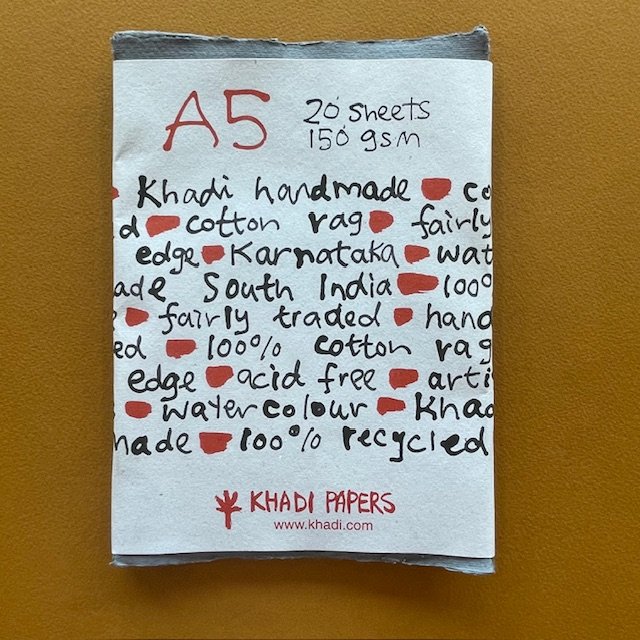 A5
20 sheets
150 gsm
Khadi handmade co
d cotton rag fairly
edge Karnataka wat
ade South India 100
fairly traded hand
ed 100% cotton rag
edge acid free arti
watercolour Khad
made 100% recycled
KHADI PAPERS
www.khadi.com